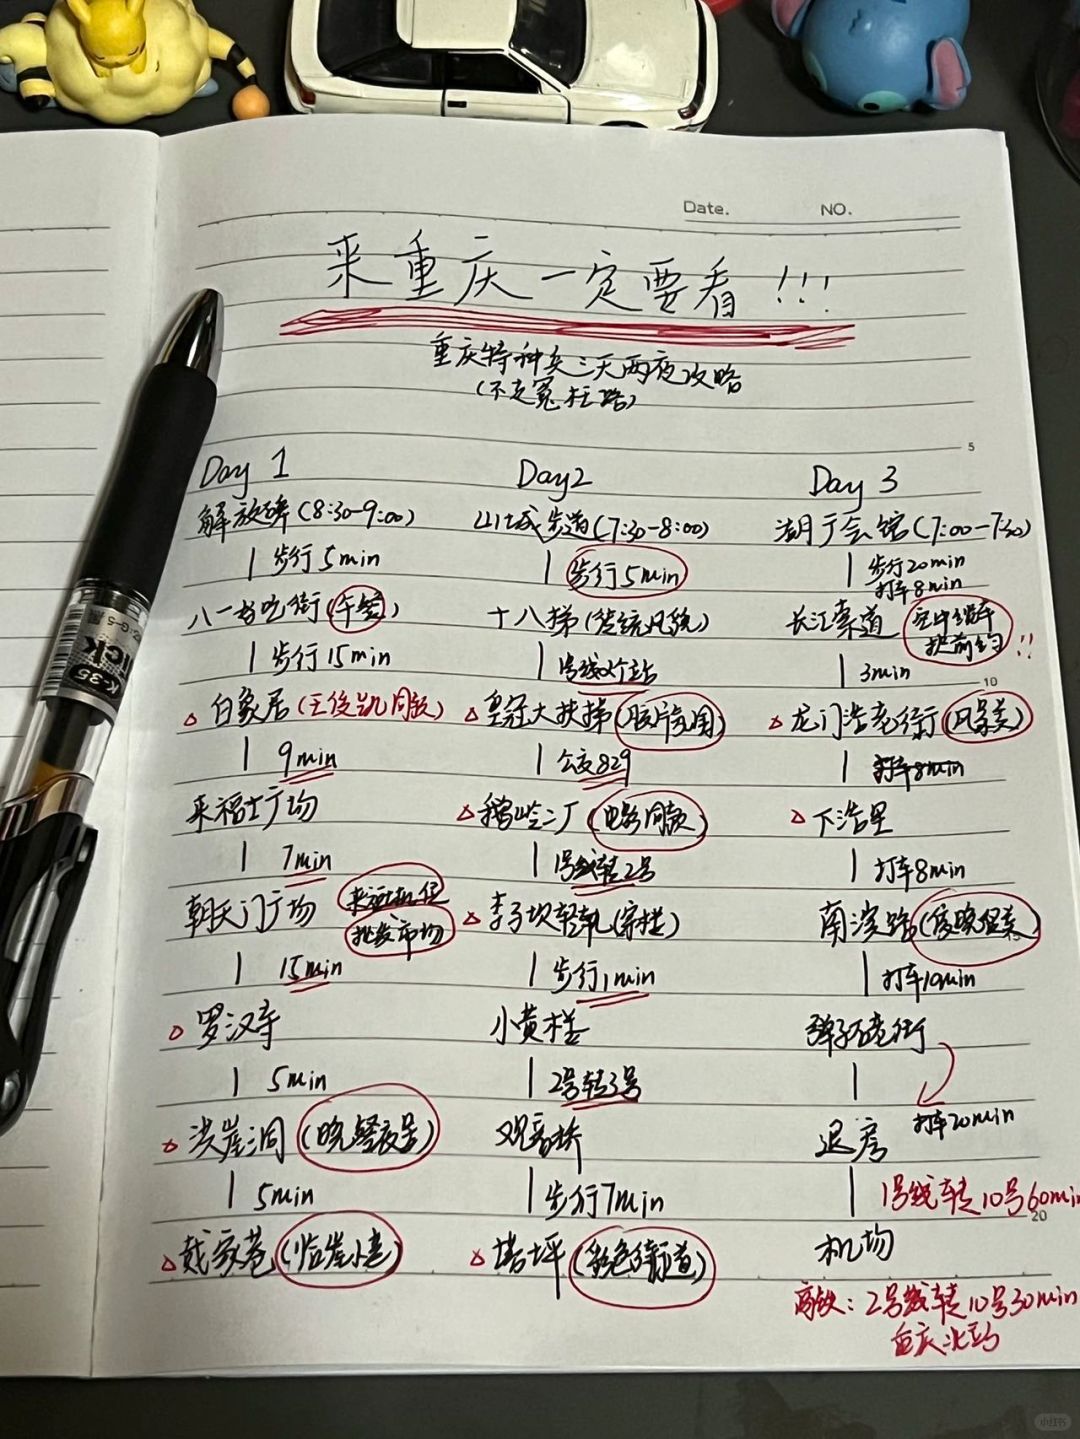 Date.
NO.
来重庆一定要看!!!
重庆特种兵三天两夜攻略
(不走冤枉路)
5
Day 1
解放碑(8:30-9:00)
步行5min
八一好吃街(午餐)
步行15min
白象居(王俊凯同款)
9min
来福士广场
7min
朝天门广场
批发市场
15min
罗汉寺
5min
洪崖洞(晚餐夜景)
5min
戴家巷(临崖小巷)
Day2
山城步道(7:30-8:00)
步行5min
十八梯(传统风貌)
1号线2个站
皇冠大扶梯(胶片氛围)
公交829
鹅岭二厂(电影同款)
1号线转2号
李子坝轻轨(穿楼)
步行1min
小黄楼
2号转3号
观音桥
步行7min
塔坪(彩色街道)
Day 3
湖广会馆(7:00-7:30)
步行20min
打车8min
长江索道
空中缆车
提前约!!
10
3min
龙门浩老街(风景美)
打车8min
下浩里
打车8min
南滨路(傍晚很美)
打车10min
弹子石老街
打车20min
退房
1号线转10号60min
20
机场
高铁:2号线转10号30min
重庆北站
K-35
G-5
小红书